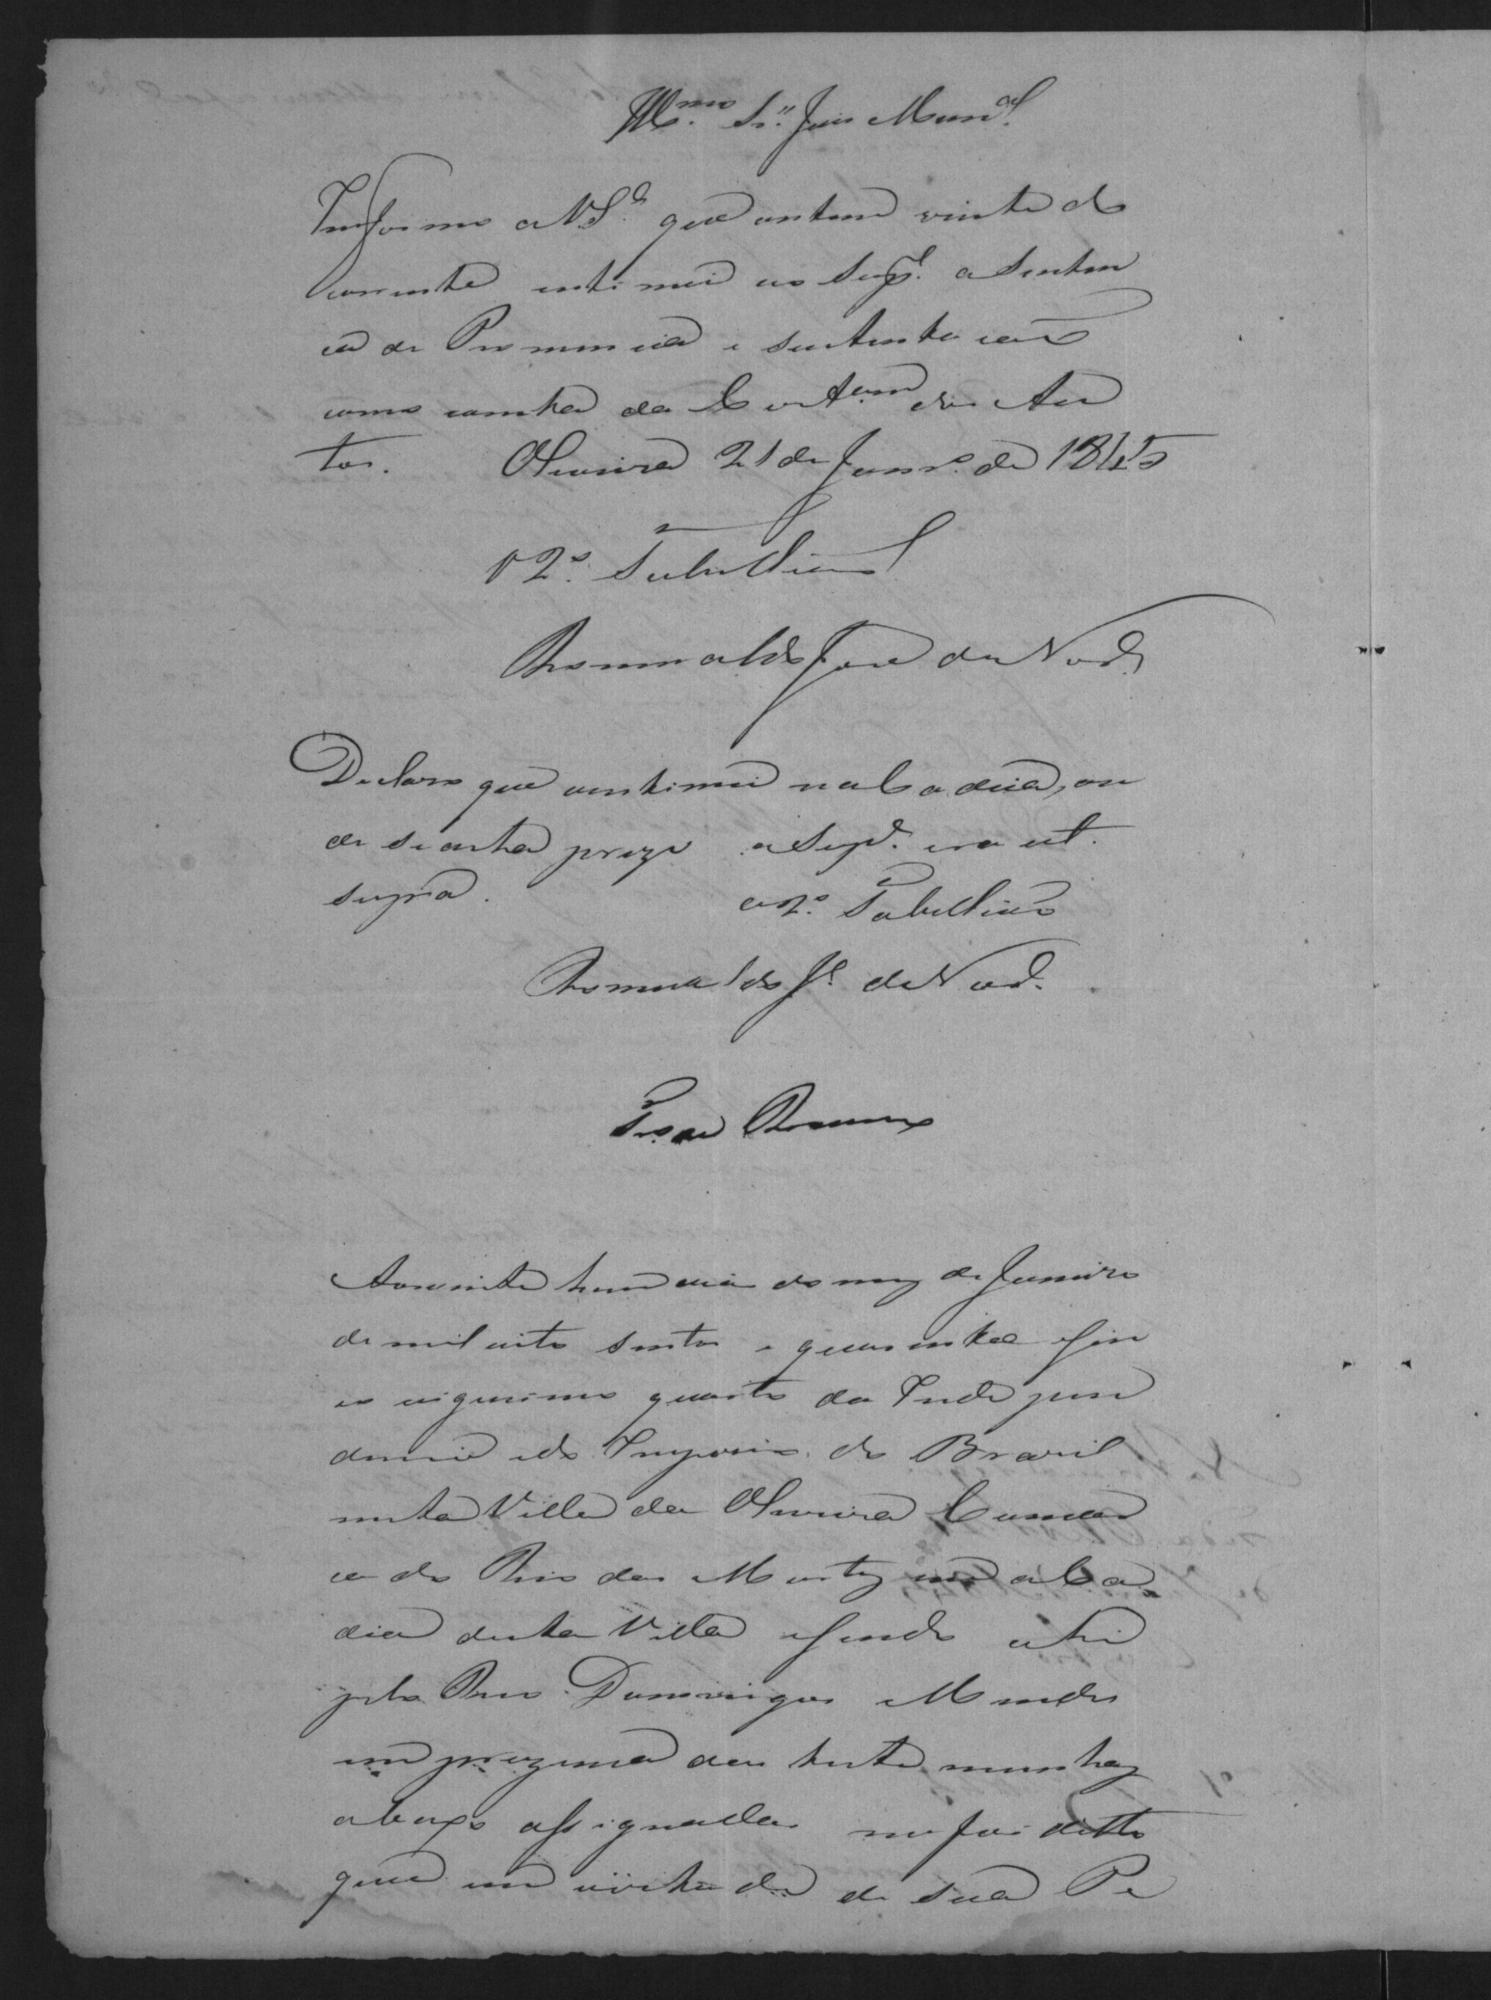 Illmo. Snr. Juis Munal.
Informo a V Sa. que ontem vinte do
corrente intimei ao Supe. a Senten
ca de Pronuncia e sustentacaõ
como consta da Certam dos Au
tos. Oliveira 21 de Janro. de 1845
O 2o. Tabelliaõ
Romualdo Jose da
Declaro que intimei na Cadeia, on
de se axha prezo o Supe. era ut
supra. O 2o. Tabelliaõ
Romualdo Je. da
Termo
Aos vinte hum dias do mez de Janeiro
de mil oito sentos e quarenta e sin
co vigesimo quarto da Indepen
dencia e do Imperio do Brazil
nesta Villa da Oliveira Comar
ca do Rio das Mortes em a Ca
deia desta Villa e sendo ahi
pelo Reo Domingos Mendes
em prezenca das testemunhas
abaxo assignadas me foi ditto
que em virtude de sua Pe